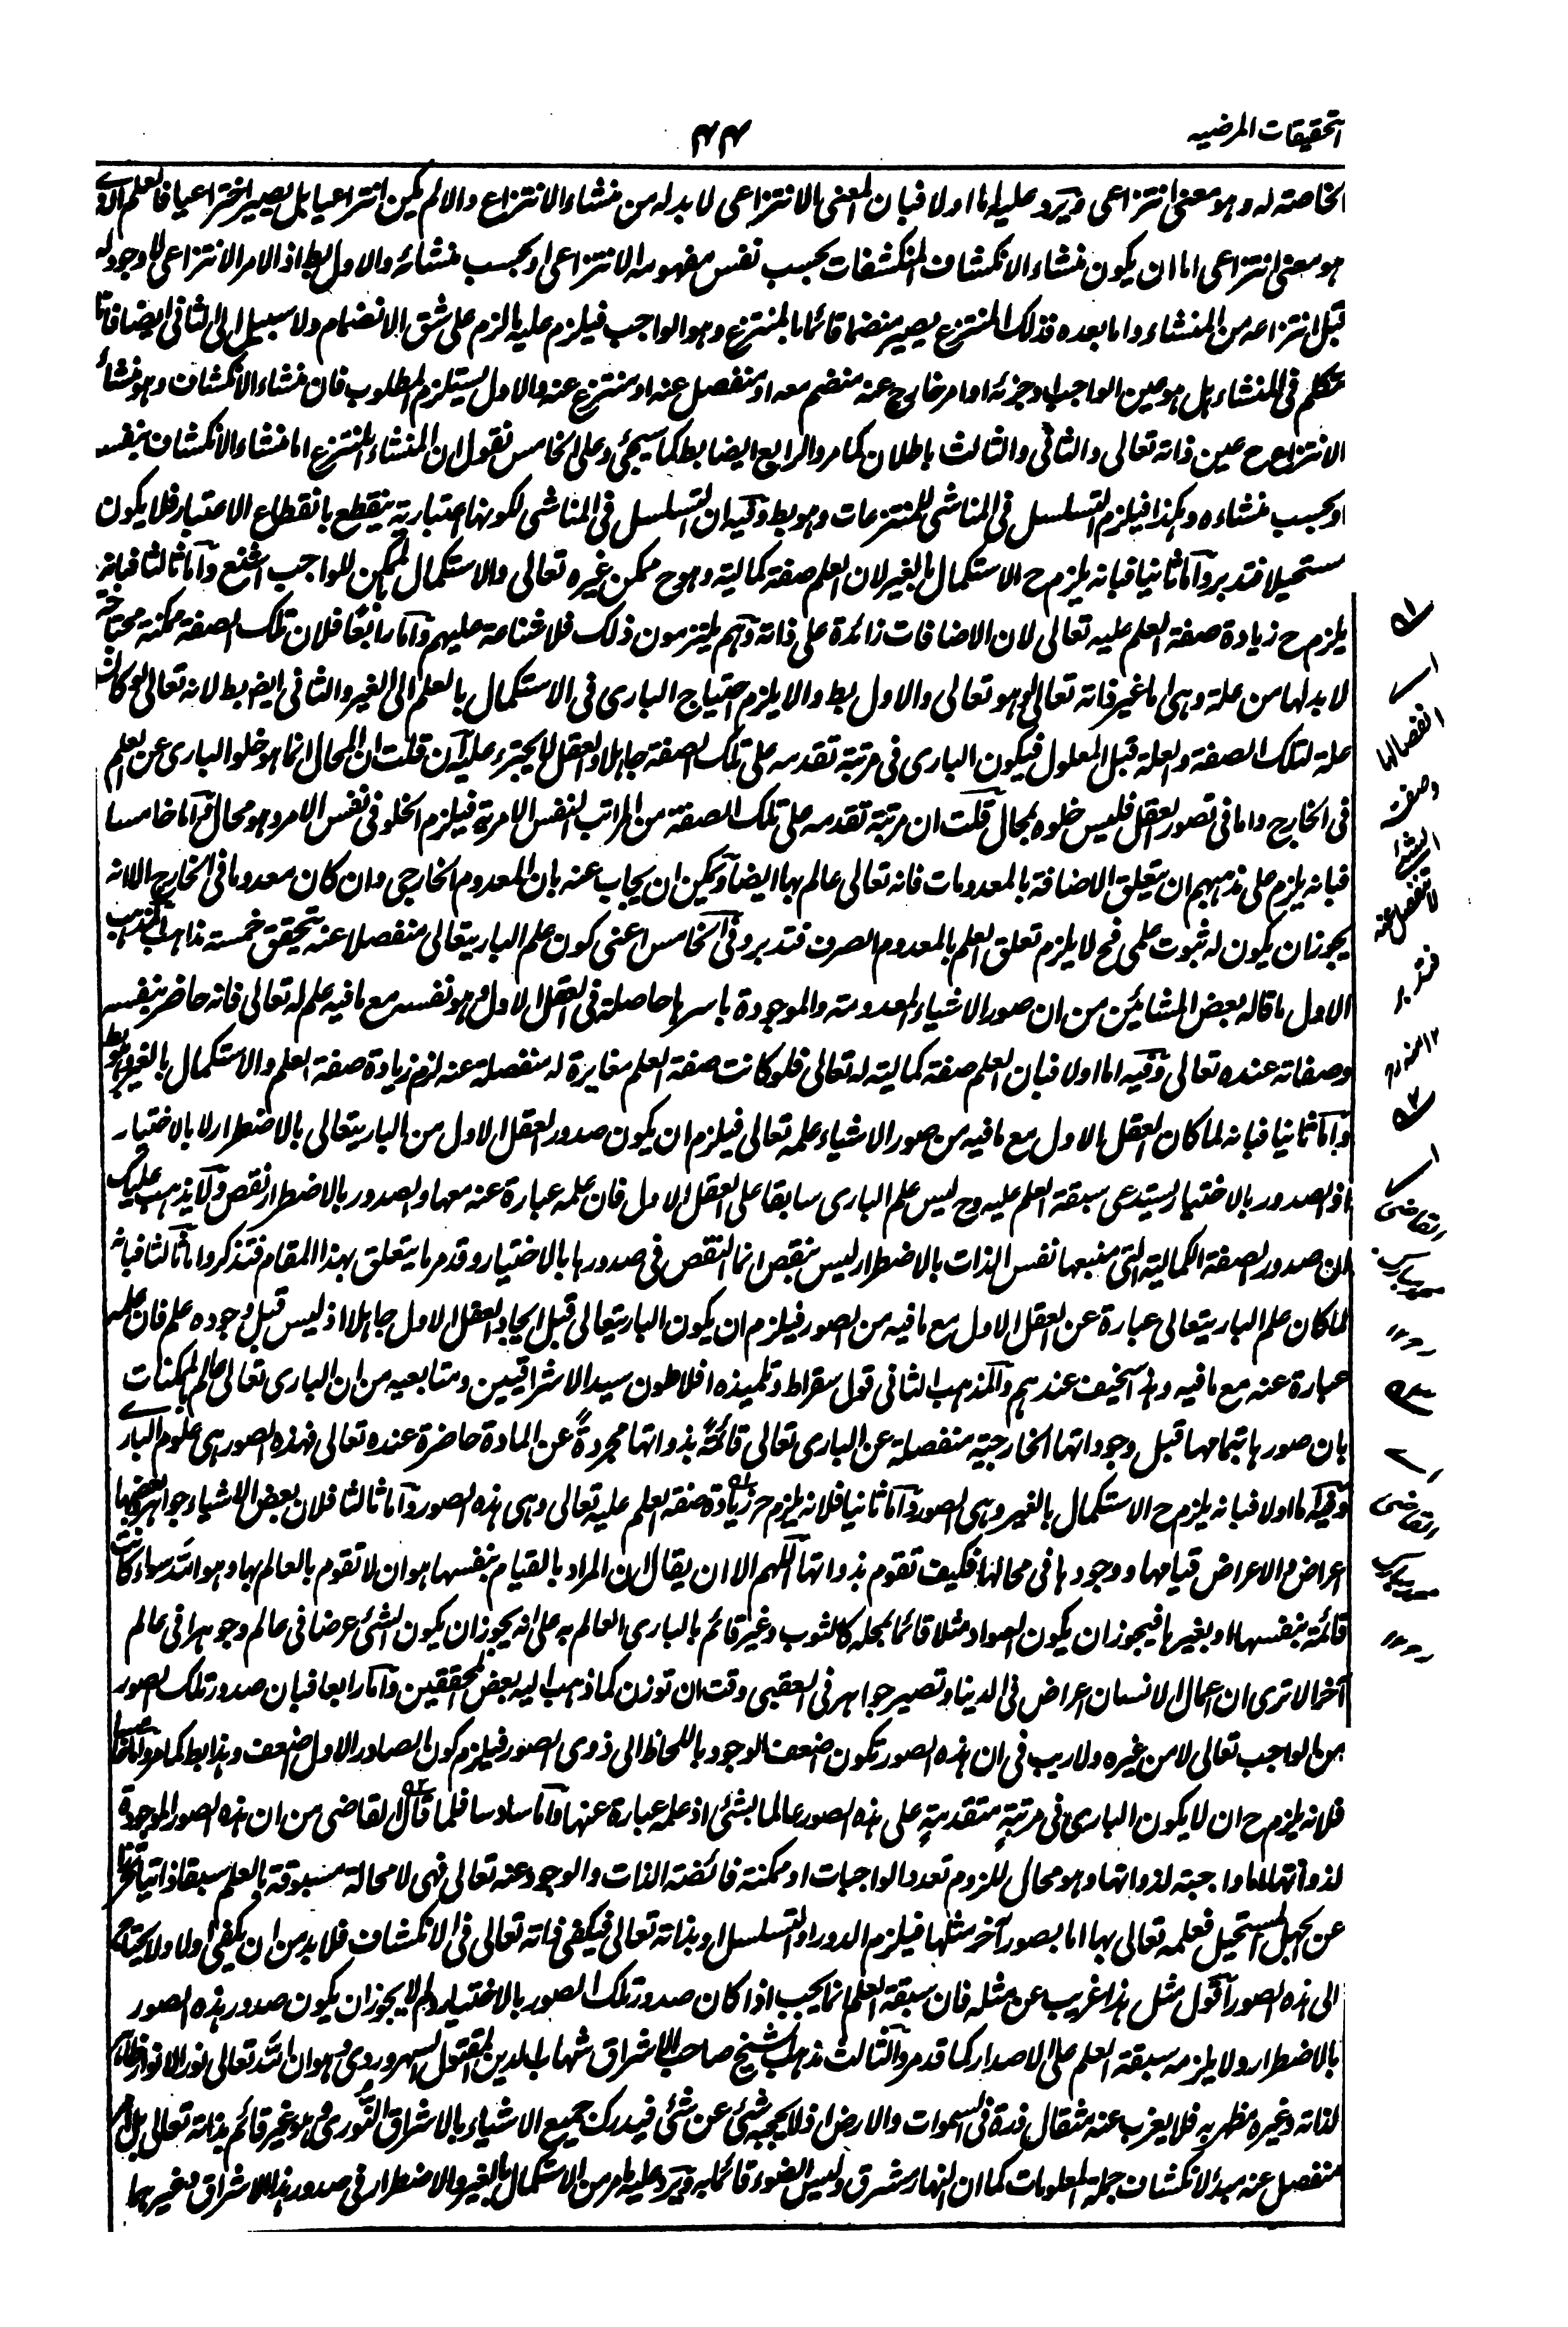 التحقيقات المرضيه
٤٤
الخاصة له وهو معنى انتزاعى ويرد عليه اما اولا فبان المعنى الانتزاعى لا بد له من منشاء الانتزاع والا لم يكن انتزاعيا بل يصير اختراعيا فالعلم الذى
هو معنى انتزاعى اما ان يكون منشاء الانكشاف المنكشفات بحسب نفس مفهومه الانتزاعى او بحسب منشائه والاول بط اذ الامر الانتزاعى لا وجود له
قبل انتزاعه من المنشاء واما بعده فذلك المنتزع يصير منضما قائما بالمنتزع وهو الواجب فيلزم عليه ما لزم على شق الانضمام ولا سبيل الى الثانى ايضا فانا
نتكلم فى المنشاء هل هو عين الواجب او جزئه او امر خارج عنه منضم معه او منفصل عنه او منتزع عنه والاول يستلزم المطلوب فان منشاء الانكشاف وهو منشأ
الانتزاع ح عين ذاته تعالى والثانى والثالث باطلان كما مر والرابع ايضا بط كما سيجئ وعلى الخامس نقول ان المنشاء المنتزع اما منشاء الانكشاف بنفسه
او بحسب منشاءه وهكذا فيلزم التسلسل فى المناشى للمنتزعات وهو بط وفيه ان التسلسل فى المناشى لكونها اعتبارية ينقطع بانقطاع الاعتبار فلا يكون
مستحيلا فتدبر واما ثانيا فبانه يلزم ح الاستكمال بالغير لان العلم صفة كمالية وهو ح ممكن غيره تعالى والاستكمال بالممكن للواجب اشنع واما ثالثا فبانه
يلزم ح زيادة صفة العلم عليه تعالى لان الاضافات زائدة على ذاته وهم يلتزمون ذلك فلا شناعة عليهم واما رابعا فلان تلك الصفة ممكنة محتاجة
لا بد لها من علة وهى اما غير ذاته تعالى او هو تعالى والاول بط والا يلزم احتياج البارى فى الاستكمال بالعلم الى الغير والثانى ايضا بط لانه تعالى لو كانت
علة لتلك الصفة والعلة قبل المعلول فيكون البارى فى مرتبة تقدمه على تلك الصفة جاهلا والعقل لا يجترء عليه آن قلت ان المحال انما هو خلو البارى عن العلم
فى الخارج واما فى تصور العقل فليس خلوه بمحال قلت ان مرتبة تقدمه على تلك الصفة من المراتب النفس الامرية فيلزم الخلو فى نفس الامر وهو محال واما خامسا
فبانه يلزم على مذهبهم ان يتعلق الاضافة بالمعدومات فانه تعالى عالم بها ايضا ويمكن ان يجاب عنه بان المعدوم الخارجى وان كان معدوما فى الخارج الا انه
يجوز ان يكون له ثبوت علمى فح لا يلزم تعلق العلم بالمعدوم الصرف فتدبر وفى الخامس اعنى كون علم البارى تعالى منفصلا عنه تتحقق خمسة مذاهب المذهب
الاول ما قاله بعض المشائين من ان صور الاشياء المعدومة والموجودة باسرها حاصلة فى العقل الاول وهو نفسه مع ما فيه علم له تعالى فانه حاضر بنفسه
وصفاته عنده تعالى وفيه اما اولا فبان العلم صفة كمالية له تعالى فلو كانت صفة العلم مغايرة له منفصلة عنه لزم زيادة صفة العلم والاستكمال بالغير وهو بط
واما ثانيا فبانه لما كان العقل الاول مع ما فيه من صور الاشياء علمه تعالى فيلزم ان يكون صدور العقل الاول من البارى تعالى بالاضطرار لا بالاختيار
اذ الصدور بالاختيار يستدعى سبقة العلم عليه وح ليس علم البارى سابقا على العقل الاول فان علمه عبارة عنه معها والصدور بالاضطرار نقص ولا يذهب عليك
ان صدور الصفة الكمالية التى منبعها نفس الذات بالاضطرار ليس بنقص انما النقص فى صدورها بالاختيار وقد مر ما يتعلق بهذا المقام فتذكر واما ثالثا فبانه
لما كان علم البارى تعالى عبارة عن العقل الاول مع ما فيه من الصور فيلزم ان يكون البارى تعالى قبل ايجاد العقل الاول جاهلا اذ ليس قبل وجوده علم فان علمه
عبارة عنه مع ما فيه وهذا سخيف عندهم والمذهب الثانى قول سقراط وتلميذه افلاطون سيد الاشراقيين ومتابعيه من ان البارى تعالى عالم بالممكنات
بان صورها بتمامها قبل وجوداتها الخارجية منفصلة عن البارى تعالى قائمةً بذواتها مجردةً عن المادة حاضرة عنده تعالى فهذه الصور هى علوم البارى
وفيه اما اولا فبانه يلزم ح الاستكمال بالغير وهى الصور واما ثانيا فلانه يلزم ح زيادة صفة العلم عليه تعالى وهى هذه الصور واما ثالثا فلان بعض الاشياء جواهر وبعضها
اعراض والاعراض قيامها ووجودها فى محالها فكيف تقوم بذواتها اللهم الا ان يقال ان المراد بالقيام بنفسها هو ان لا تقوم بالعالم بها وهو الله سواء كانت
قائمة بنفسها او بغيرها فيجوز ان يكون السواد مثلا قائما بمحله كالثوب وغير قائم بالبارى العالم به على انه يجوز ان يكون الشئ عرضا فى عالم وجوهرا فى عالم
آخر الا ترى ان اعمال الانسان اعراض فى الدنيا وتصير جواهر فى العقبى وقت ان توزن كما ذهب اليه بعض المحققين واما رابعا فبان صدور تلك الصور
من الواجب تعالى لا من غيره ولا ريب فى ان هذه الصور تكون اضعف الوجود باللحاظ الى ذوى الصور فيلزم كون الصادر الاول اضعف وهذا بط كما مر واما خامسا
فلانه يلزم ح ان لا يكون البارى فى مرتبةٍ متقدمةٍ على هذه الصور عالما بشئ اذ علمه عبارة عنها واما سادسا فلما قال القاضى من ان هذه الصور الموجودة
لذواتها اما واجبة لذواتها وهو محال للزوم تعدد الواجبات او ممكنة فائضة الذات والوجود عنه تعالى فهى لا محالة مسبوقة بالعلم سبقا ذاتيا تحرزا
عن الجهل المستحيل فعلمه تعالى بها اما بصور آخر مثلها فيلزم الدور او التسلسل او بذاته تعالى فيكفى ذاته تعالى فى الانكشاف فلا بد من ان يكفى اولا ولا يحتاج
الى هذه الصور اقول مثل هذا غريب عن مثله فان سبقة العلم انما يجب اذا كان صدور تلك الصور بالاختيار ولم لا يجوز ان يكون صدور هذه الصور
بالاضطرار ولا يلزمه سبقة العلم على الاصدار كما قد مر والثالث مذهب الشيخ صاحب الاشراق شهاب الدين المقتول السهروردى وهو ان الله تعالى نور الانوار ظاهر
لذاته وغيره مظهر به فلا يعزب عنه مثقال ذرة فى السموات والارض اذ لا يحجبه شئ عن شئ فيدرك جميع الاشياء بالاشراق النورى وهو غير قائم بذاته تعالى بل امر
منفصل عنه مبدأ لانكشاف جملة المعلومات كما ان النهار مشرق وليس الضوء قائما به ويرد عليه ما مر من الاستكمال بالغير والاضطرار فى صدور هذا الاشراق وغيرهما
ا
انفصالها
لا تنفصل عنه
فتدبر
١٢ منه رح
القاضى
مبارك
القاضى
مبارك